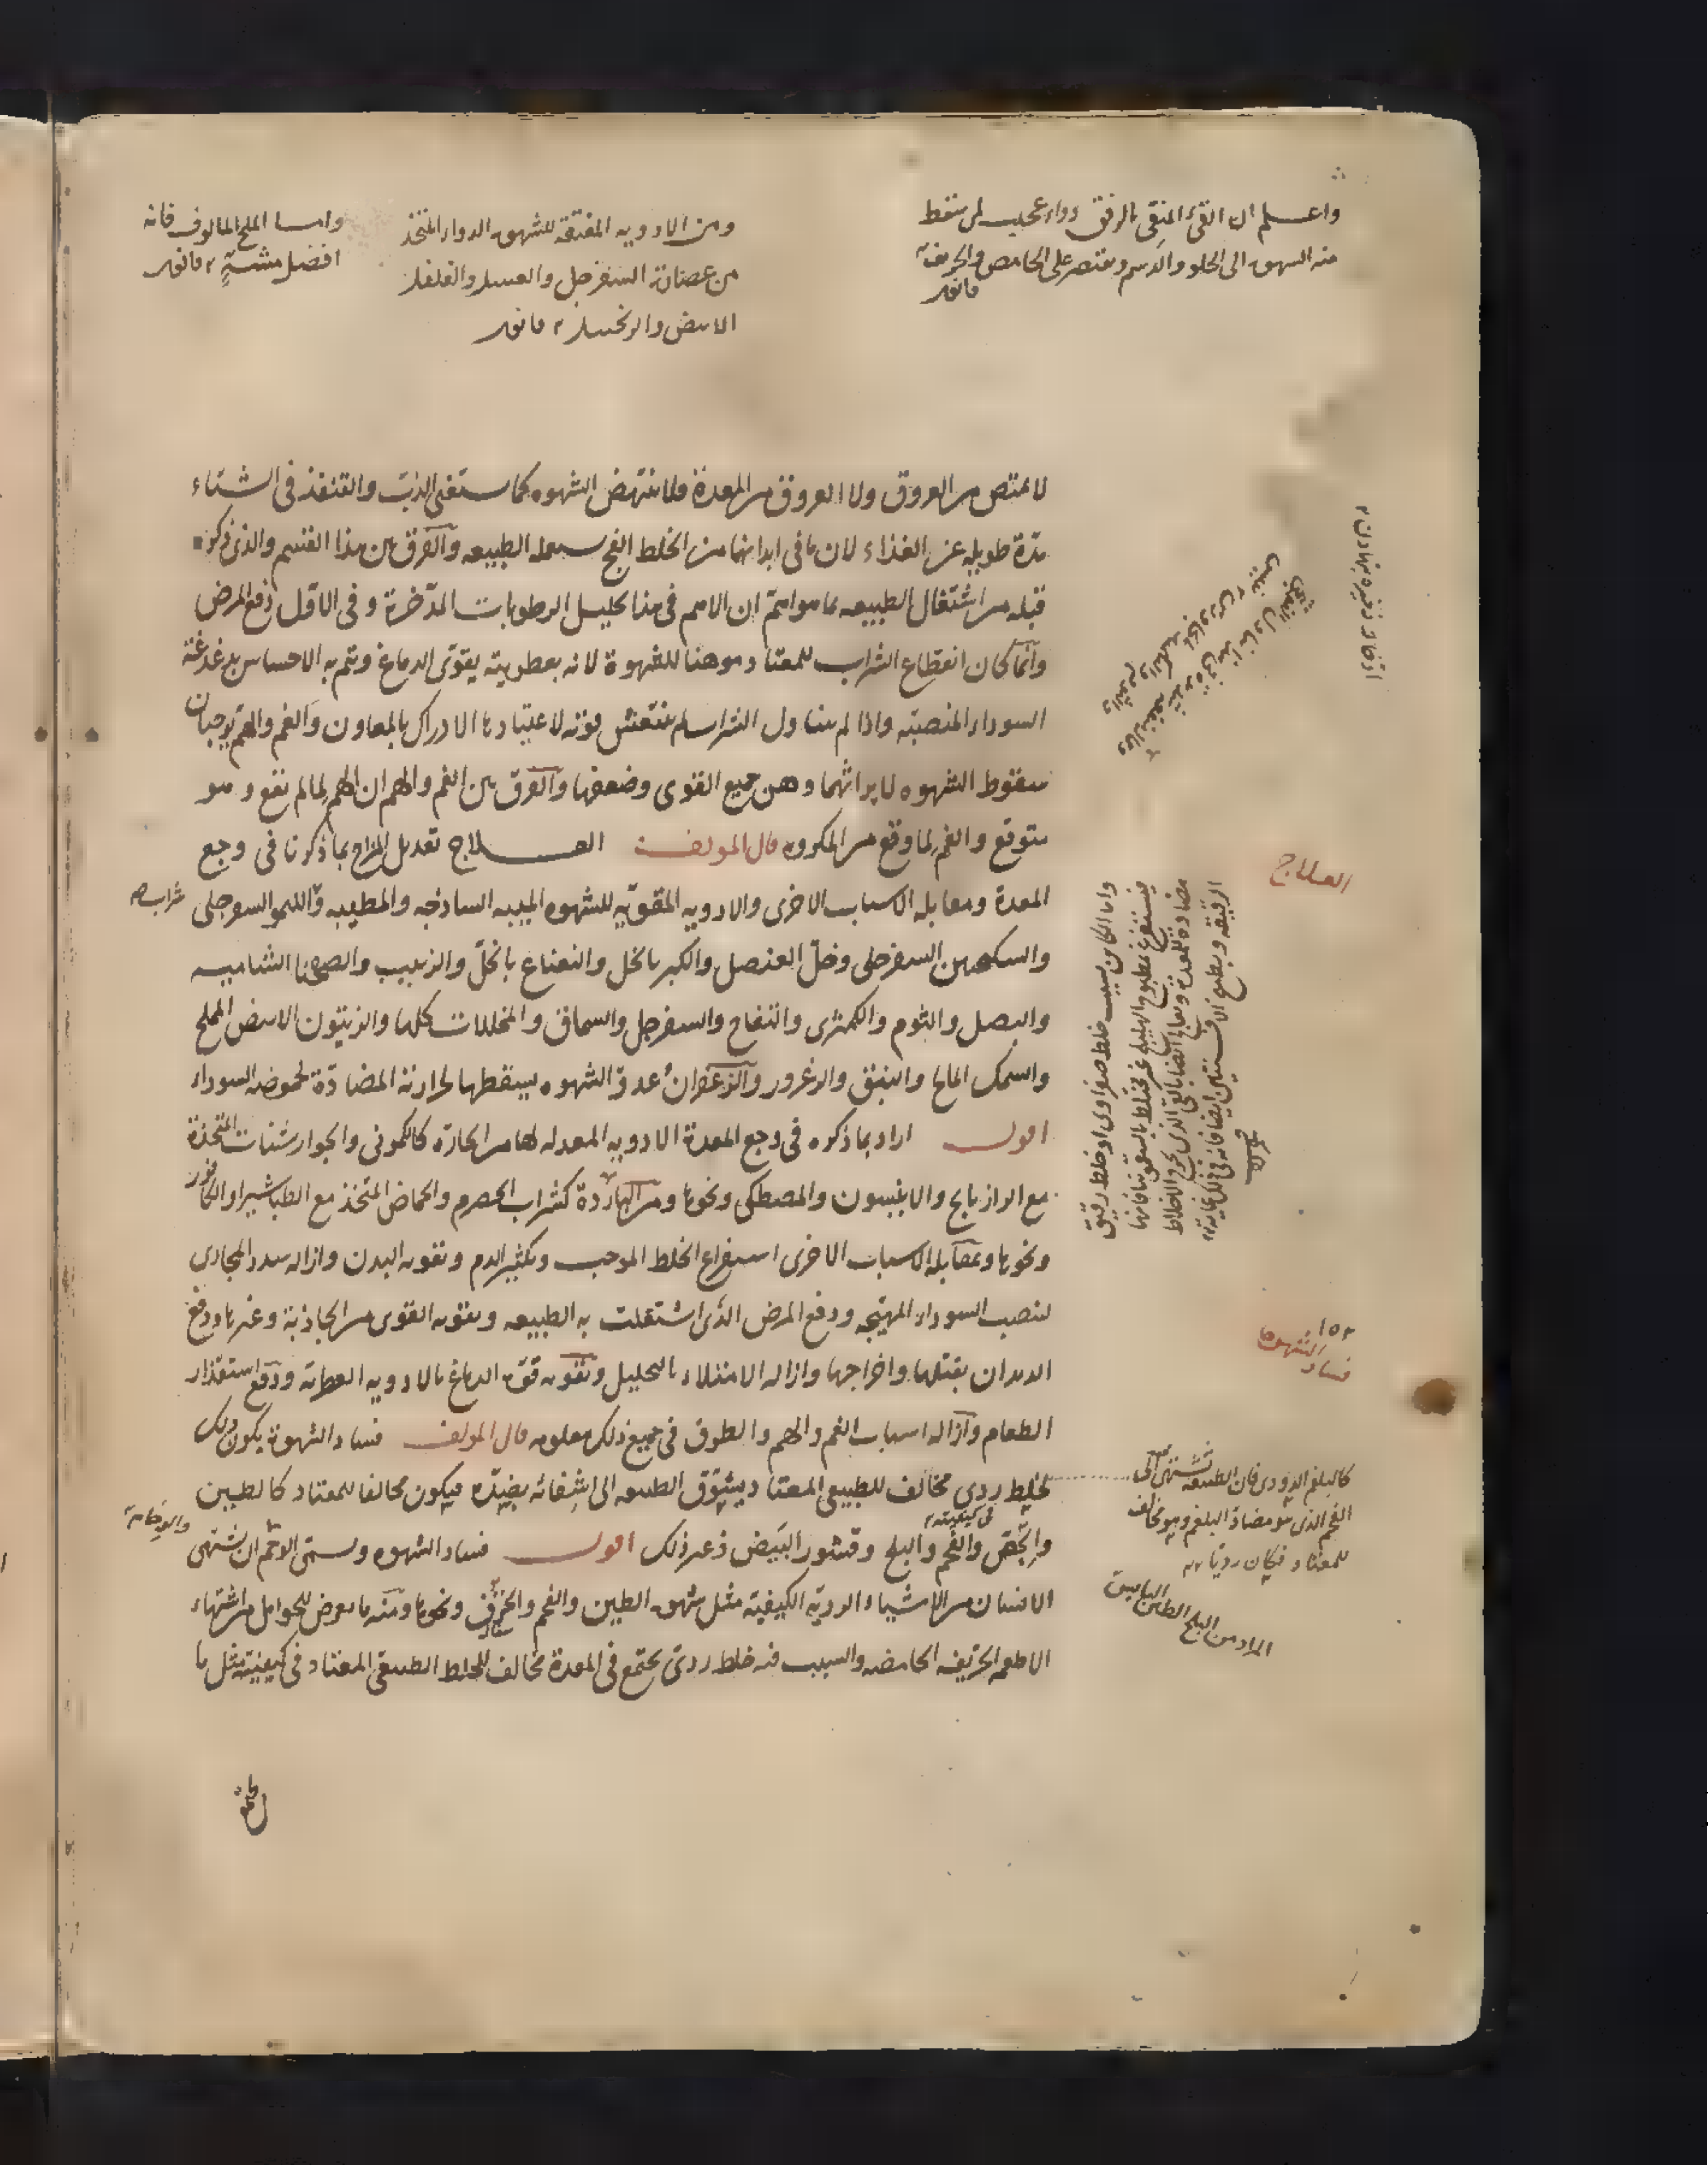 واعلم ان القئ المنقى بالرفق دواء عجيب لمن سقط
منه الشهوة الى الحلو والدسم ويقتصر على الحامض والحريف
قانون
ومن الادوية المفتقة للشهوة الدواء المتخذ
من عصارة السفرجل والعسل والفلفل
الابيض والزنجبيل قانون
واما الملح المالوف فانه
افضل مشهٍّ قانون
لا تمتص من العروق ولا العروق من المعدة فلا تنتهض الشهوه كما يستغنى الدب والقنفذ فى الشتاء
مدّة طويله عن الغذاء لان ما فى ابدانها من الخلط الفج يستعمله الطبيعه والفرق بين هذا القسم والذى ذكره
قبله من اشتغال الطبيعه بما هو اهمّ ان الاهم فى هذا تحليل الرطوبات المدّخرة وفى الاوّل دفع المرض
وانّما كان انقطاع الشراب للمعتاد موهنا للشهوة لانه بعطريته يقوّى الدماغ ويتم به الاحساس بدغدغة
السوداء المنصبّه واذا لم يتناول الشراب لم ينتعش قوته لاعتيادها الادراك بالمعاون والغم والهمّ يوجبان
سقوط الشهوه لايراثهما وهن جميع القوى وضعفها والفرق بين الغم والهم ان الهم لما لم يقع وهو
متوقع والغم لما وقع من المكروه قال المولف العلاج تعديل المزاج بما ذكرنا فى وجع
المعدة ومقابله الاسباب الاخرى والادويه المقوّيه للشهوه الميبه الساذجه والمطيبه والليمو السفرجلى
شراب
والسكنجبين السفرجلى وخلّ العنصل والكبر بالخل والنعناع بالخلّ والزبيب والصحنا الشاميه
والبصل والثوم والكمثرى والتفاح والسفرجل والسماق والمخللات كلها والزيتون الابيض المملح
والسمك المالح والنبق والزعرور والزعفران عدوّ الشهوه يسقطها لحرارته المضادّة لحموضه السوداء
اقول اراد بما ذكره فى وجع المعدة الادويه المعدله لها من الحارّه كالكمونى والجوارشنات المتخذة
مع الرازيانج والانيسون والمصطكى ونحوها ومن الباردة كشراب الحصرم والحماض المتخذ مع الطباشير او الكافور
ونحوها وبمقابله الاسباب الاخرى استفراغ الخلط الموجب وتكثير الدم وتقويه البدن وازاله سدد المجارى
لتنصب السوداء المهيّجه ودفع المرض الذى اشتغلت به الطبيعه وتقويه القوى من الجاذبة وغيرها ودفع
الديدان بقتلها واخراجها وازاله الامتلاء بالتحليل وتقويه قوّة الدماغ بالادويه العطرة ودفع استقذار
الطعام وازاله اسباب الغم والهم والطرق فى جميع ذلك معلومه قال المولف فساد الشهوة يكون ذلك
لخلط ردى مخالف للطبيعى المعتاد فيشوّق الطبيعه الى اشفائه بضدّه فيكون مخالفا للمعتاد كالطين
فى كيفيته
والجصّ والفحم والبلح وقشور البيض وغير ذلك اقول فساد الشهوه ويسمّى الوحم ان يشتهى
الانسان من الاشياء الرديّه الكيفيّه مثل شهوة الطين والفحم والخزف ونحوها ومنه ما يعرض للحوامل من اشتهاء
الاطعمه الحرّيفه الحامضه والسبب فيه خلط ردى يجتمع فى المعدة مخالف للخلط الطبيعى المعتاد فى كيفيته مثل ما
العلاج
واما الكاين بسبب خلط صفراوى او خلط رقيق
فيستفرغ بمطبوخ الهليلج غير مختلط بالسقمونيا فانها
مضادة للمعدة ويعالج ايضا بالقئ الذى يخرج الاخلاط
الرقيقه وبطبيخ الافسنتين ايضا فانه فى ذلك غايه
١٥٢
فساد الشهوة
كالبلغم الدودى فان الطبيعه تشتهى الى
الفحم الذى هو مضاد البلغم وهو مخالف
للمعتاد فكان رديا
المراد من البلح الطلع اليابس